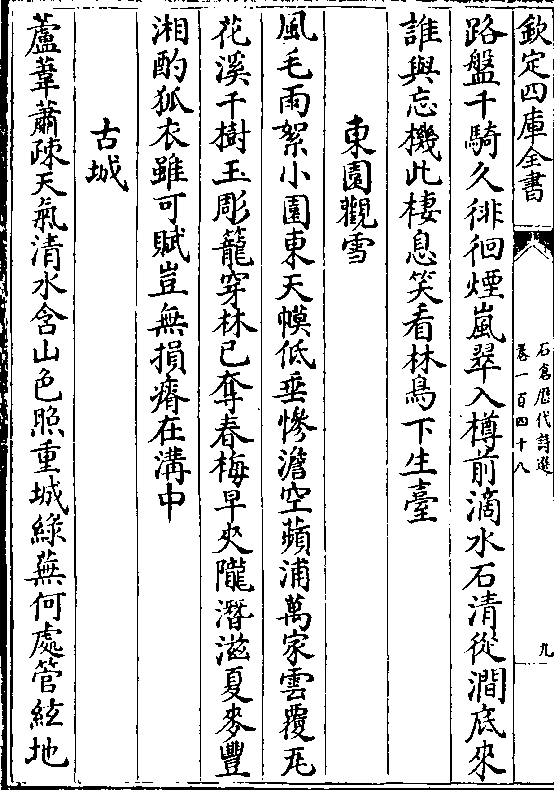 欽定四庫全書
石倉歷代詩選
卷一百四十八
九
路盤千騎久徘徊煙嵐翠入樽前滴水石清從澗底來
誰與忘機此棲息笑看林鳥下生臺
東園觀雪
風毛雨絮小園東天幙低垂慘澹空蘋浦萬家雲覆瓦
花溪千樹玉彫籠穿林已奪春梅早夾隴潛滋夏麥豐
湘酌狐衣雖可賦豈無損瘠在溝中
古城
蘆葦蕭疎天氣清水含山色照重城綠蕪何處管絃地